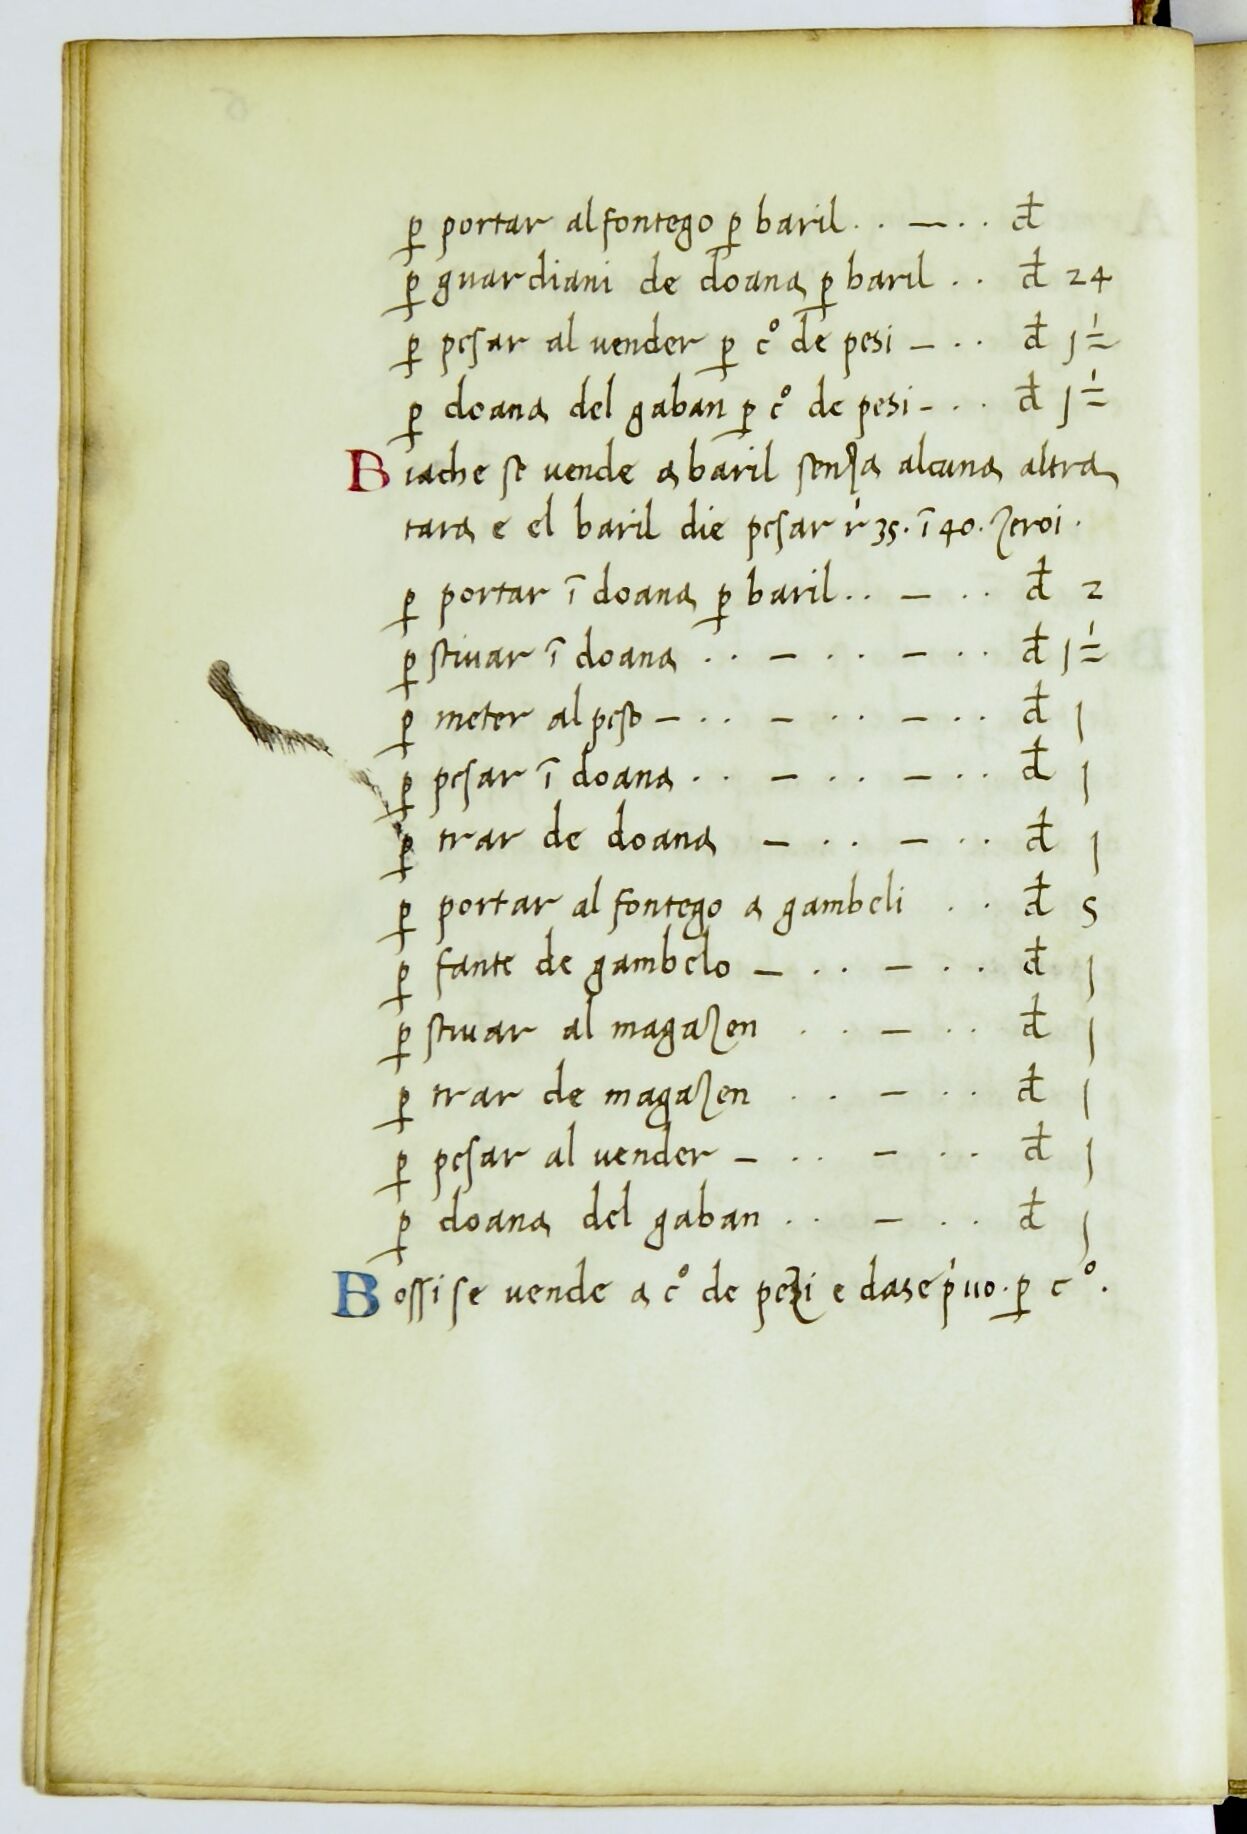 ꝑ portar al fontego ꝑ baril . . — . . đ
ꝑ guardiani de doana ꝑ baril . . đ 24
ꝑ pesar al vender ꝑ c̊ de pesi — . . đ 1 ½
ꝑ doana del gaban ꝑ c̊ de pesi - . . đ 1 ½
Biache se uende a baril senza alcuna altra
tara e el baril die pesar r' 35. ī 40. zeroi .
ꝑ portar ī doana ꝑ baril . . — . . đ 2
ꝑ stiuar ī doana . . — . . — . . đ 1 ½
ꝑ meter al peso — . . — . . — . . đ 1
ꝑ pesar ī doana . . — . . — . . đ 1
ꝑ trar de doana — . . — . . đ 1
ꝑ portar al fontego a gambeli . . đ 5
ꝑ fante de gambelo — . . — . . đ 1
ꝑ stiuar al magazen . . — . . đ 1
ꝑ trar de magazen . . — . . đ 1
ꝑ pesar al uender — . . — . . đ 1
ꝑ doana del gaban . . — . . đ 1
Bossi se uende a c̊ de pezi e dase p' 110 . ꝑ c° .